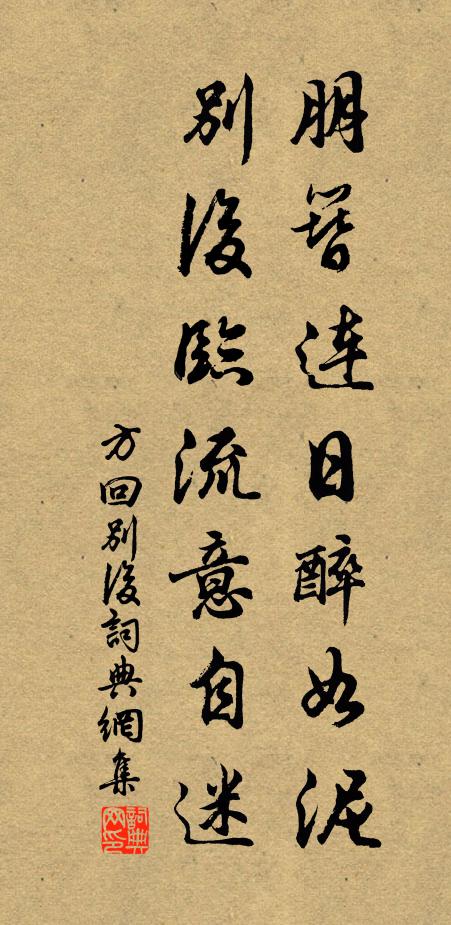 朋簪連日醉如泥
別後臨流意自迷
方回別後詞典網集
詞典網印